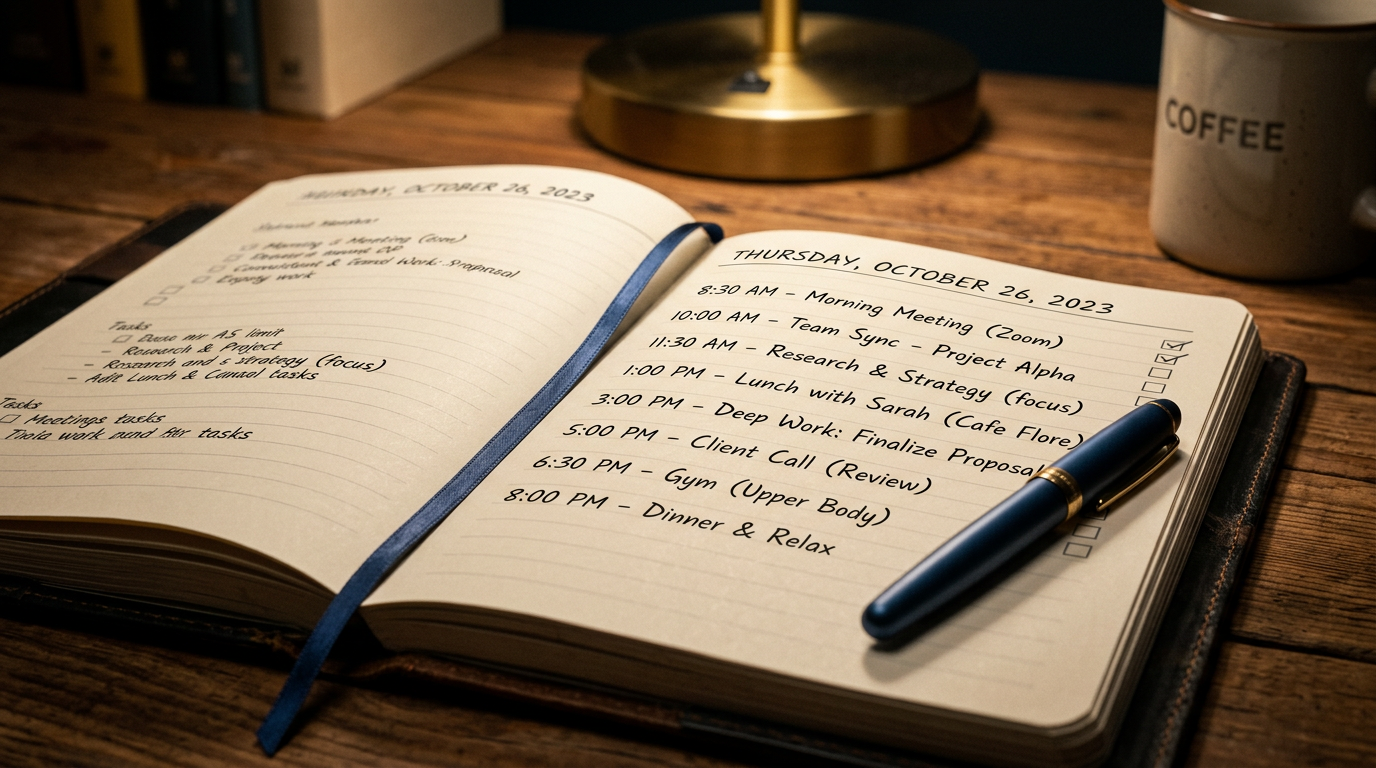 OCTOBER 26, 2023
Morning & Meeting
Work: Proposal
work
Tasks
limit
- Research & Project
- Research and & Strategy (focus)
- Lunch & tasks
Tasks
Meetings tasks
work and tasks
THURSDAY, OCTOBER 26, 2023
8:30 AM – Morning Meeting (Zoom)
10:00 AM – Team Sync – Project Alpha
11:30 AM – Research & Strategy (focus)
1:00 PM – Lunch with Sarah (Cafe Flore)
3:00 PM – Deep Work: Finalize Proposal
5:00 PM – Client Call (Review)
6:30 PM – Gym (Upper Body)
8:00 PM – Dinner & Relax
COFFEE